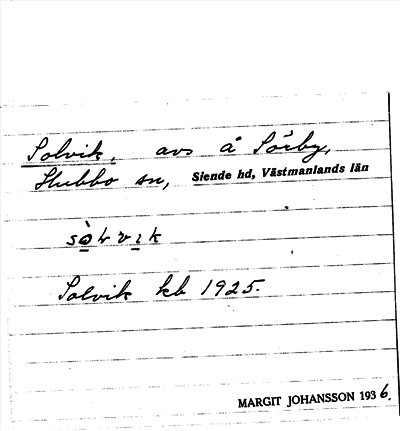 Solvik, avs å Sörby,
Hubbo sn, Siende hd, Västmanlands län
Solvik kb 1925.
MARGIT JOHANSSON 1936.